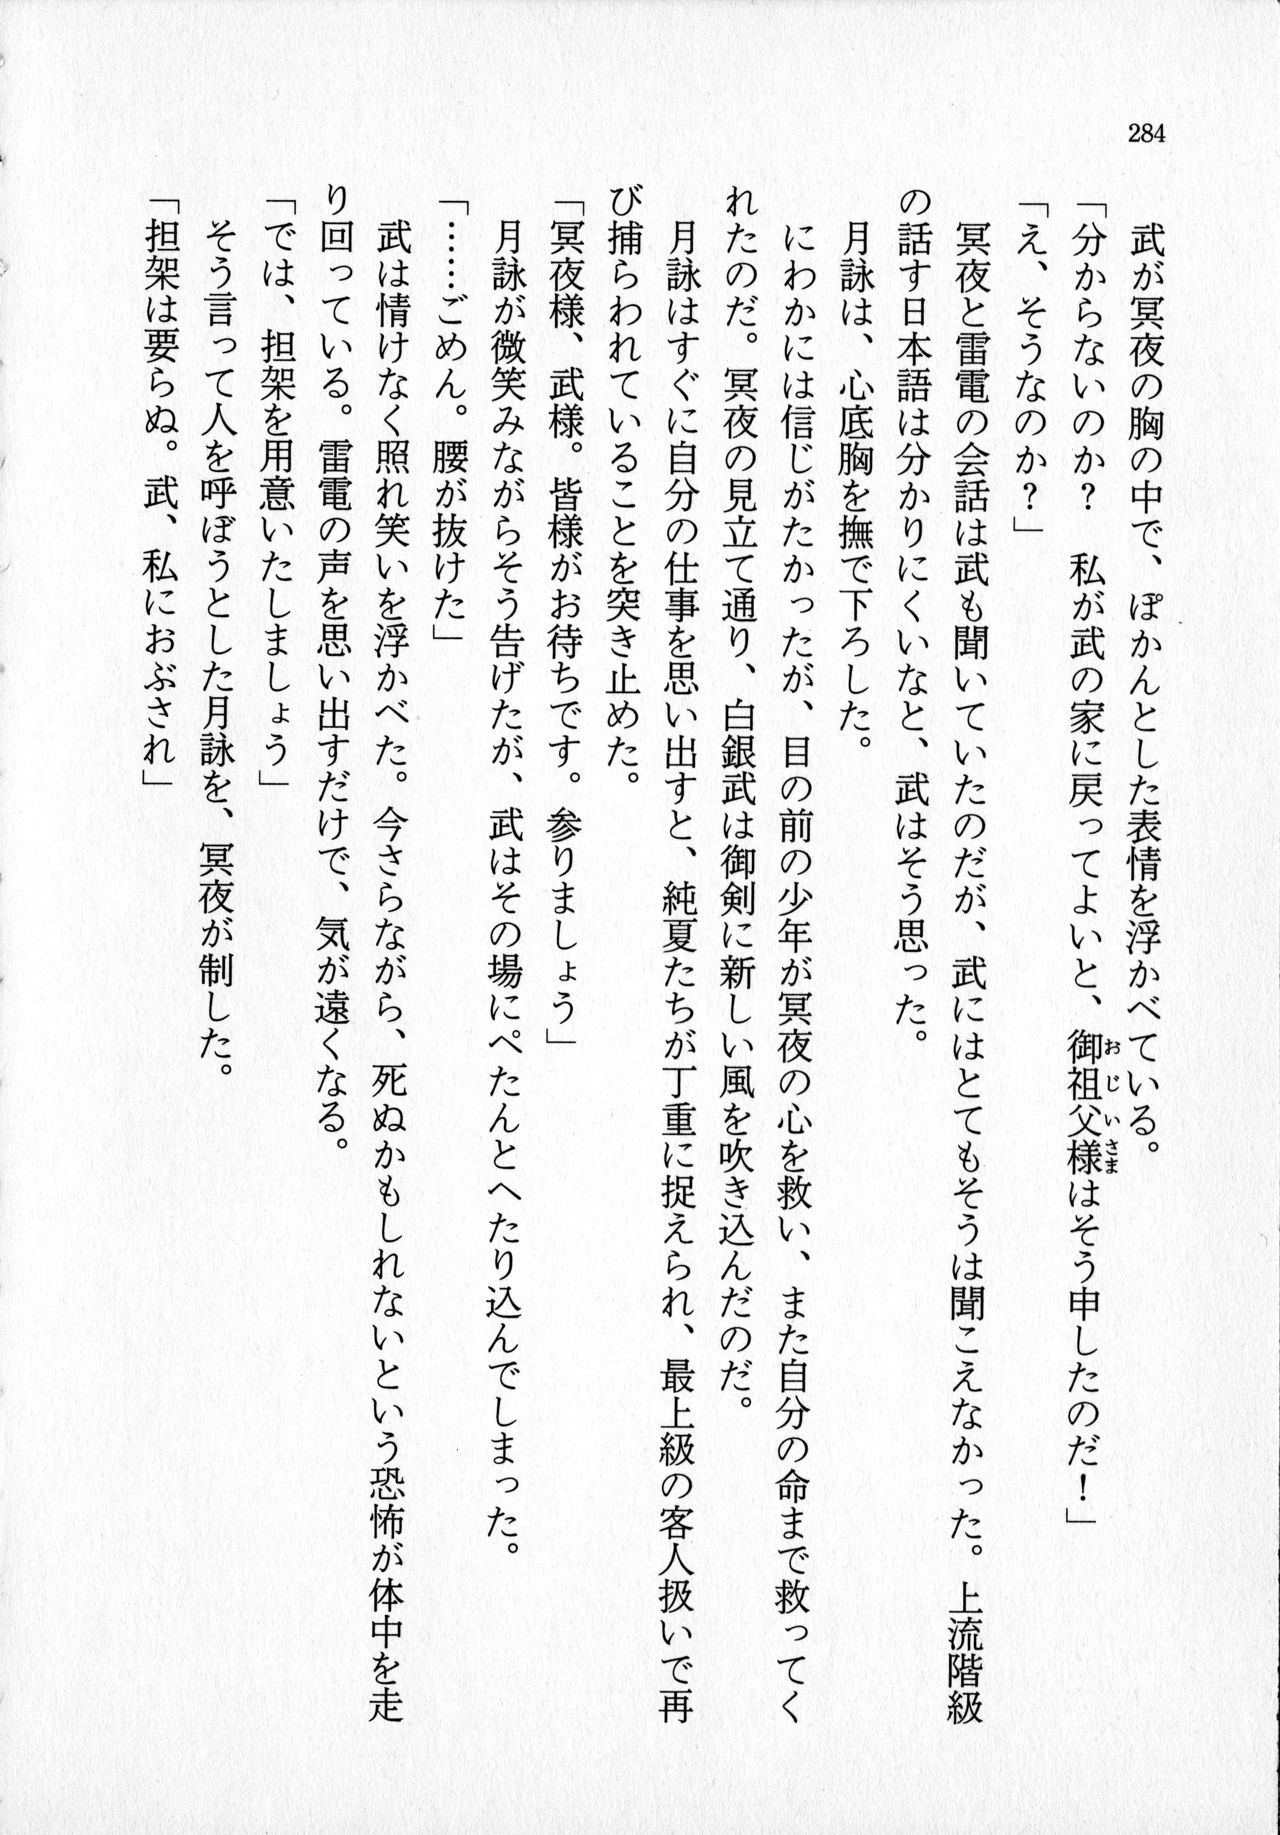 284
　武が冥夜の胸の中で、ぽかんとした表情を浮かべている。
「分からないのか？　私が武の家に戻ってよいと、御祖父様はそう申したのだ！」
「え、そうなのか？」
　冥夜と雷電の会話は武も聞いていたのだが、武にはとてもそうは聞こえなかった。上流階級
の話す日本語は分かりにくいなと、武はそう思った。
　月詠は、心底胸を撫で下ろした。
　にわかには信じがたかったが、目の前の少年が冥夜の心を救い、また自分の命まで救ってく
れたのだ。冥夜の見立て通り、白銀武は御剣に新しい風を吹き込んだのだ。
　月詠はすぐに自分の仕事を思い出すと、純夏たちが丁重に捉えられ、最上級の客人扱いで再
び捕らわれていることを突き止めた。
「冥夜様、武様。皆様がお待ちです。参りましょう」
　月詠が微笑みながらそう告げたが、武はその場にぺたんとへたり込んでしまった。
「……ごめん。腰が抜けた」
　武は情けなく照れ笑いを浮かべた。今さらながら、死ぬかもしれないという恐怖が体中を走
り回っている。雷電の声を思い出すだけで、気が遠くなる。
「では、担架を用意いたしましょう」
　そう言って人を呼ぼうとした月詠を、冥夜が制した。
「担架は要らぬ。武、私におぶされ」
おじいさま